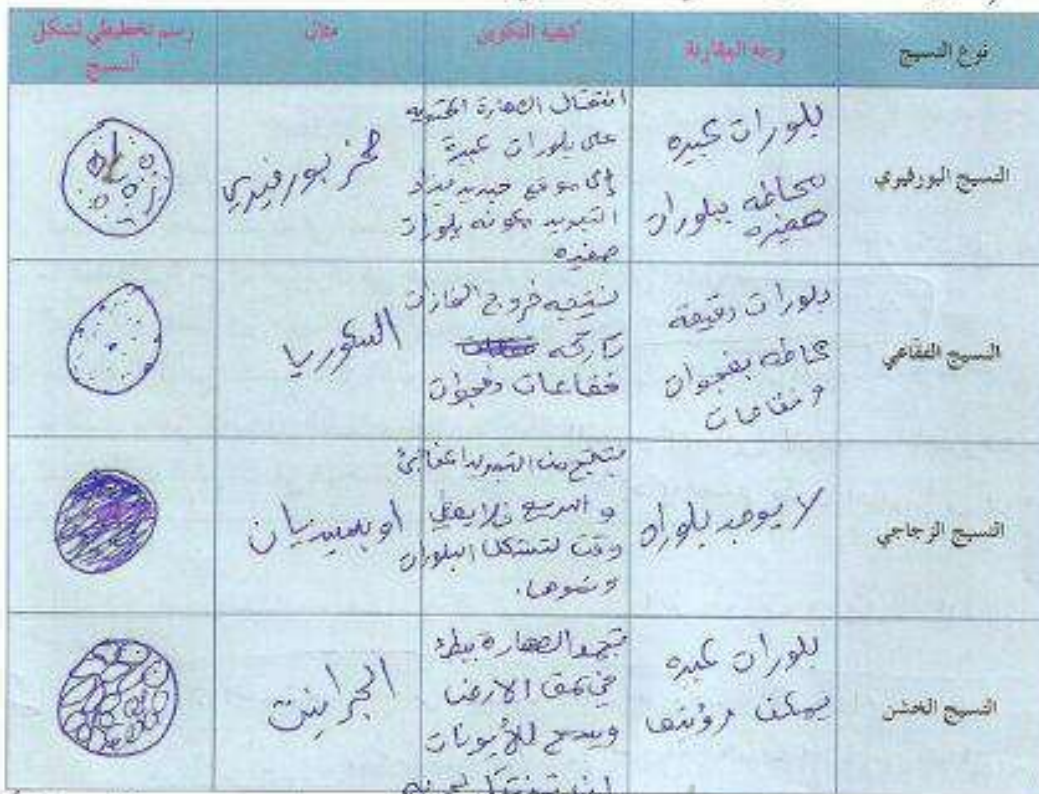 نوع النسيج
وجه المقارنة
كيفية التكوين
مثال
رسم تخطيطي لشكل
النسيج
النسيج البورفيري
بلورات كبيره
محاطه ببلورات
صغيره
انتقال الصهارة المحتويه
على بلورات كبيرة
إلى موقع جديد يزداد
التبريد مكونه بلورات
صغيره
صخر بورفيري
النسيج الفقاعي
بلورات دقيقه
محاطه بفجوات
وفقاعات
نتيجه خروج الغازات
تاركه
فقاعات وفجوات
السكوريا
النسيج الزجاجي
لا يوجد بلورات
ينتج من التبريد المفاجئ
و السريع لا يعطي
وقت لتشكل البلورات
ونموها.
اوبسيديان
النسيج الخشن
بلورات كبيره
يمكن رؤيتها
الصهارة ببطء
في عمق الارض
ويسمح للأيونات
الجرانيت